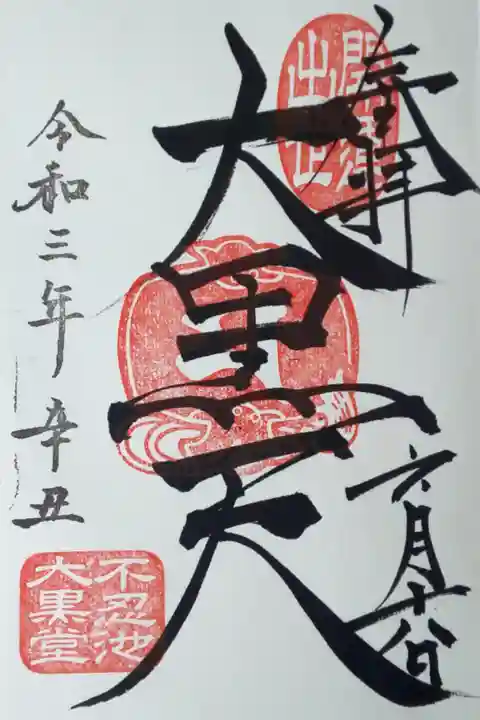 奉拝
開運
出世
大黒天
六月十八日
令和三年 辛丑
不忍池
大黒堂